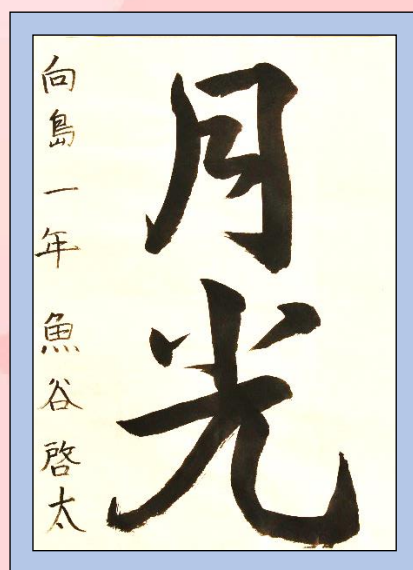 月光
向島一年 魚谷啓太